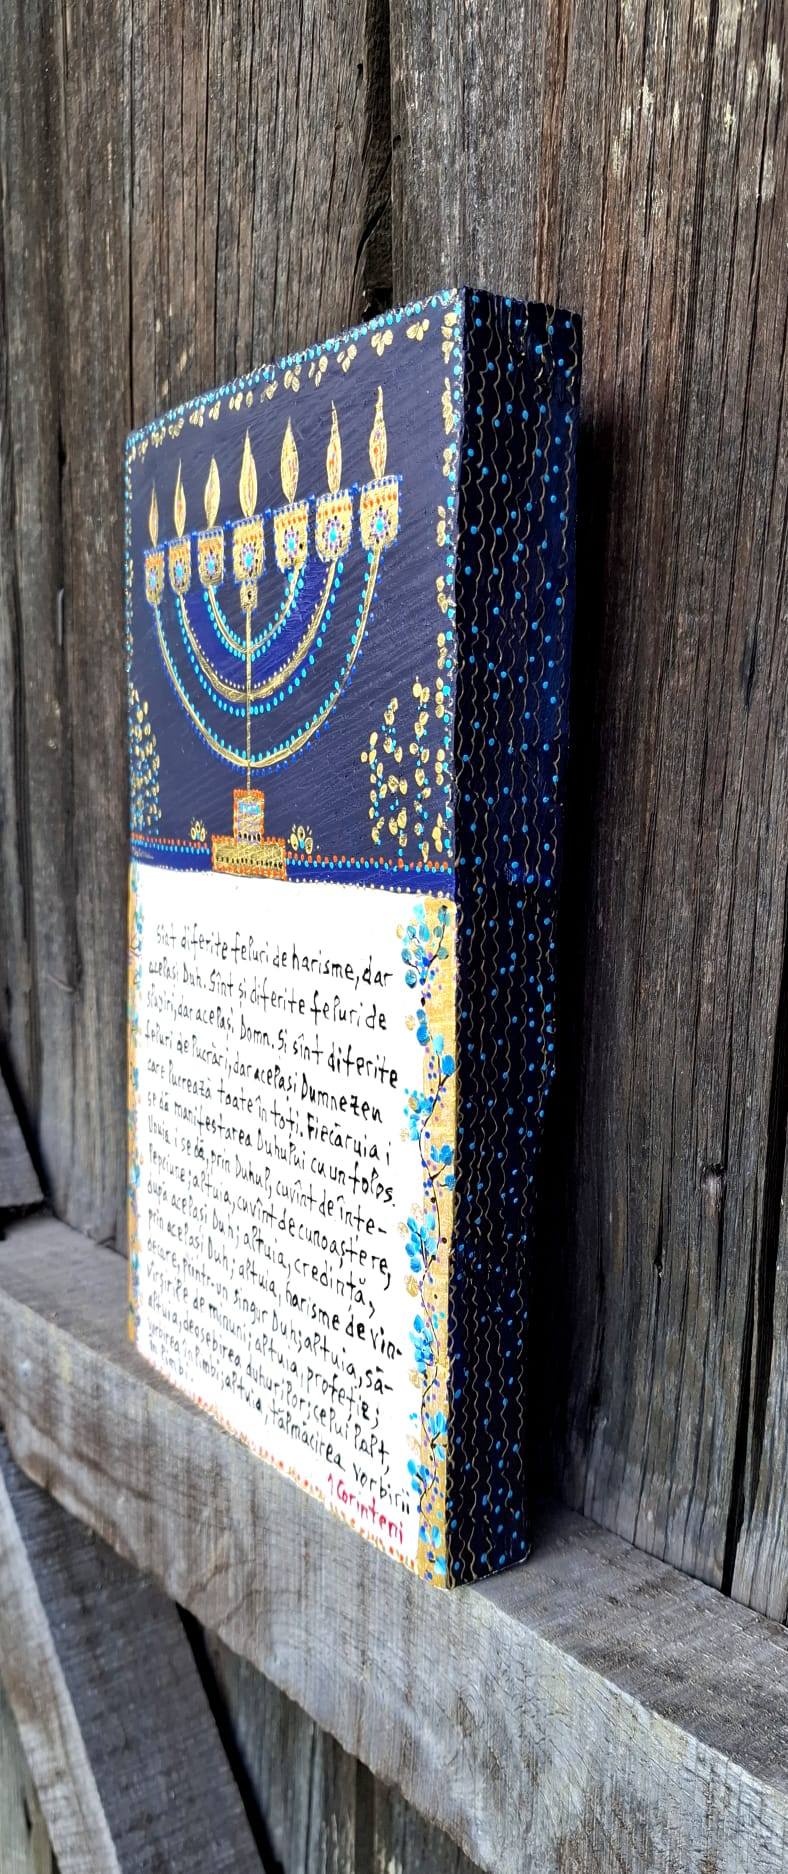 Sînt diferite feluri de harisme, dar
același Duh. Sînt și diferite feluri de
slujiri, dar același Domn. Și sînt diferite
feluri de lucrări, dar același Dumnezeu
care lucrează toate în toți. Fiecăruia i
se dă manifestarea Duhului cu un folos.
Unuia i se dă, prin Duhul, cuvînt de înțe-
lepciune; altuia, cuvînt de cunoaștere,
după același Duh; altuia, credință,
prin același Duh; altuia, harisme de vin-
decare, printr-un singur Duh; altuia, să-
vîrșirile de minuni; altuia, profeție;
altuia, deosebirea duhurilor; celui lalt,
vorbirea în limbi; altuia, tălmăcirea vorbirii
în limbi
1 Corinteni